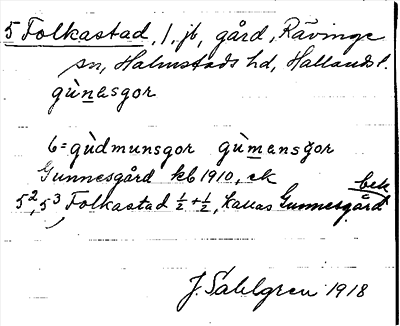 5 Folkastad, 1, jb, gård, Rävinge
sn, Halmstads hd, Hallands l.
gùnesgor
6 = gùdmunsgor gùmensgor
Gunnesgård kb 1910, ek
bek
5², 5³, Folkastad ½ + ½, kallas Gunnesgård
J. Sahlgren 1918